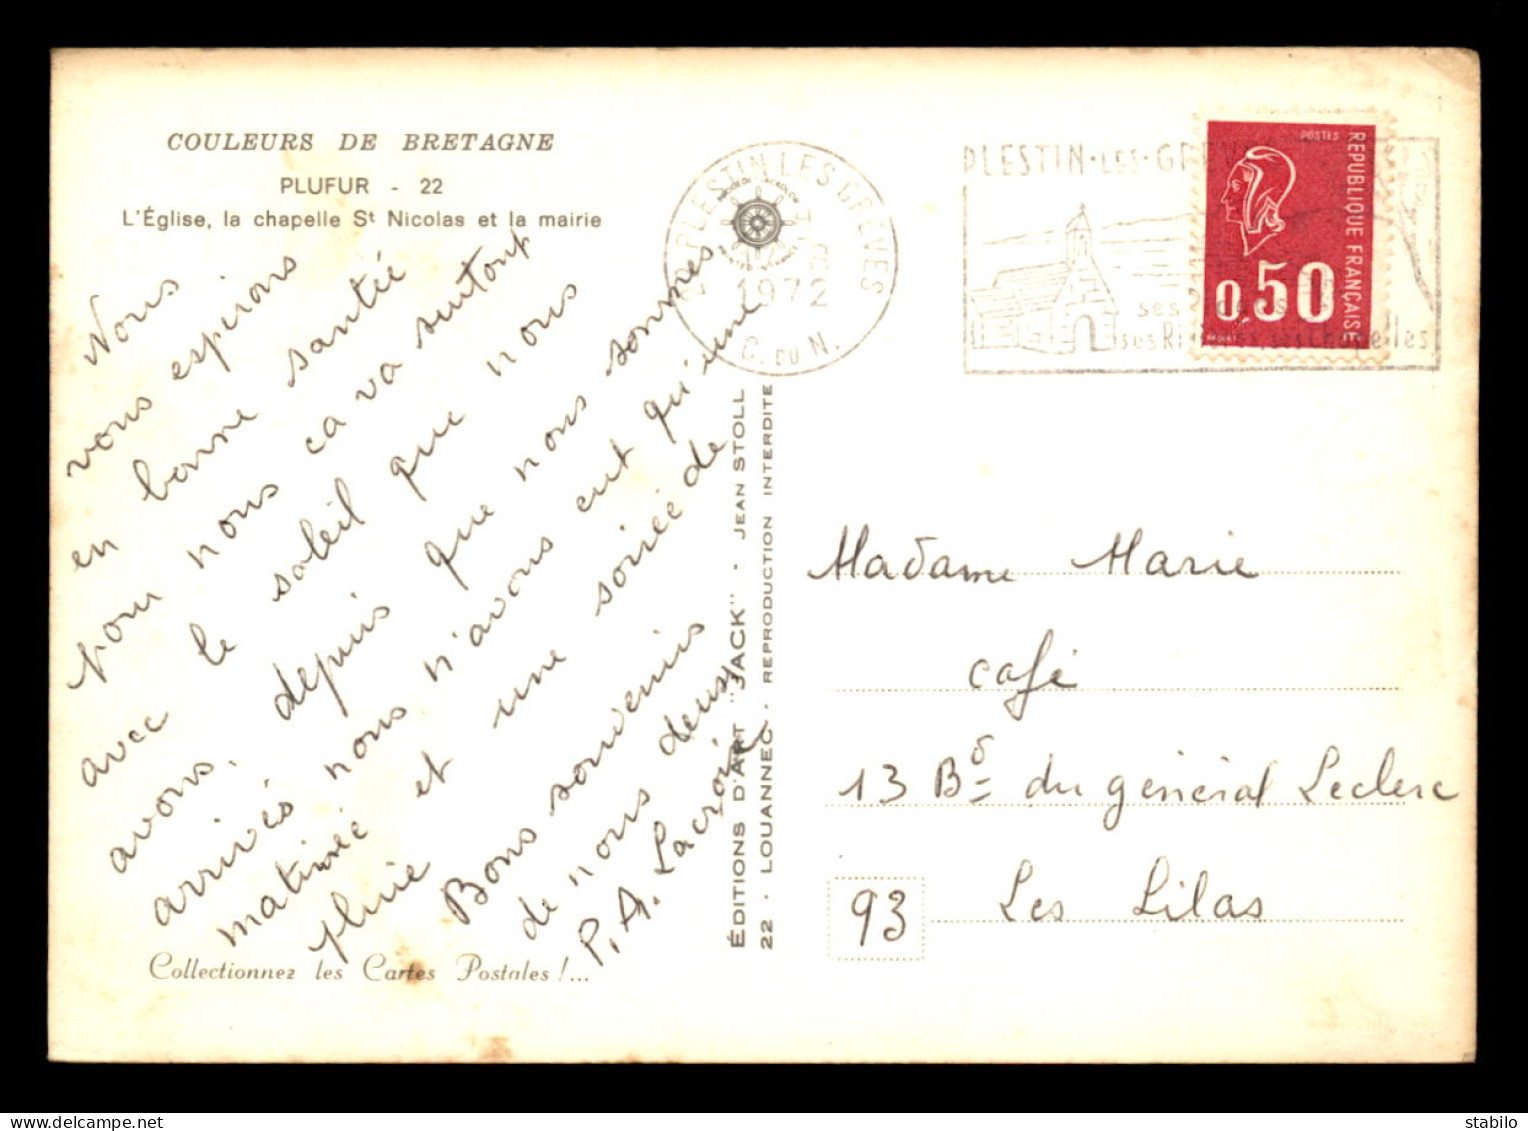 COULEURS DE BRETAGNE
PLUFUR - 22
L'Église, la chapelle St Nicolas et la mairie
Nous
vous espérons
en bonne santée
pour nous ca va surtout
avec le soleil que nous
avons. depuis que nous sommes
arrivés nous n'avons eut qu'une
matinée et une soirée de
pluie
Bons souvenirs
de nous deux
P.A. Lacroix
Collectionnez les Cartes Postales !...
ÉDITIONS D'ART "JACK" - JEAN STOLL
22 - LOUANNEC - REPRODUCTION INTERDITE
PLESTIN LES GREVES
1972
C. DU N.
PLESTIN-LES-GREVES
ses
ses chapelles
POSTES
REPUBLIQUE FRANÇAISE
0,50
Madame Marie
café
13 Bd du général Leclerc
93 Les Lilas
stabilo